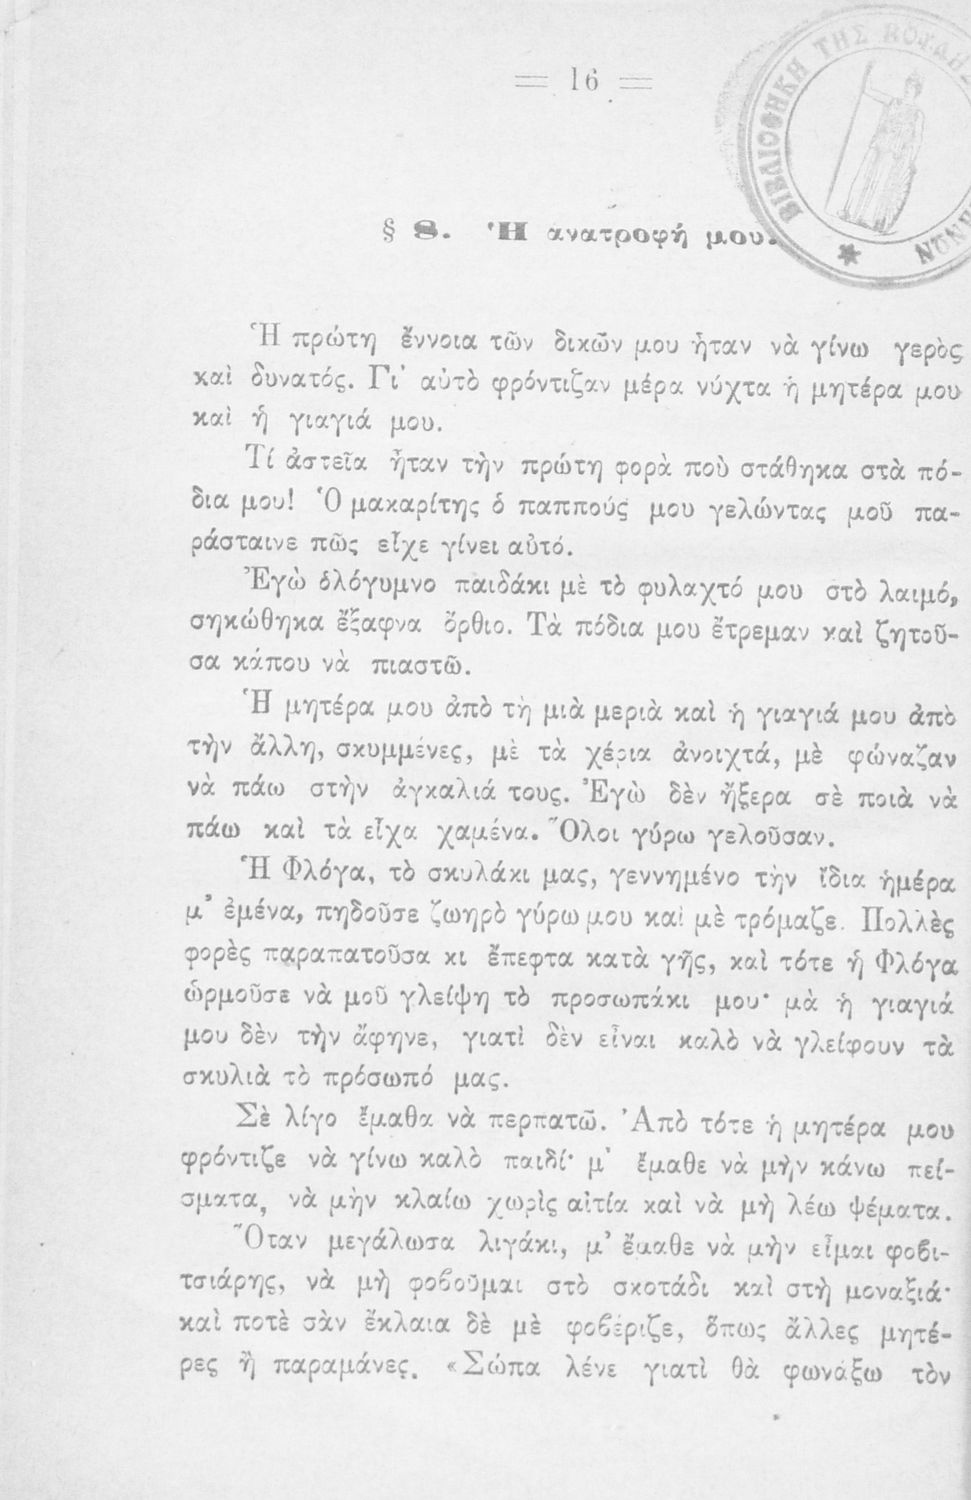 = 16 =
ΒΙΒΛΙΟΘΗΚΗ ΤΗΣ ΒΟΥΛΗΣ
§ 8. Ἡ ανατροφή μου.
Ἡ πρώτη ἔννοια τῶν δικῶν μου ἦταν νὰ γίνω γερὸς
καὶ δυνατός. Γι᾽ αὐτὸ φρόντιζαν μέρα νύχτα ἡ μητέρα μου
καὶ ἡ γιαγιά μου.
Τί ἀστεῖα ἦταν τὴν πρώτη φορὰ ποὺ στάθηκα στὰ πό-
δια μου! Ὁ μακαρίτης ὁ παππούς μου γελώντας μοῦ πα-
ράσταινε πῶς εἶχε γίνει αὐτό.
Ἐγὼ ὁλόγυμνο παιδάκι μὲ τὸ φυλαχτό μου στὸ λαιμό,
σηκώθηκα ἔξαφνα ὄρθιο. Τὰ πόδια μου ἔτρεμαν καὶ ζητοῦ-
σα κάπου νὰ πιαστῶ.
Ἡ μητέρα μου ἀπὸ τὴ μιὰ μεριὰ καὶ ἡ γιαγιά μου ἀπὸ
τὴν ἄλλη, σκυμμένες, μὲ τὰ χέρια ἀνοιχτά, μὲ φώναζαν
νὰ πάω στὴν ἀγκαλιά τους. Ἐγὼ δὲν ἤξερα σὲ ποιὰ νὰ
πάω καὶ τὰ εἶχα χαμένα. Ὅλοι γύρω γελοῦσαν.
Ἡ Φλόγα, τὸ σκυλάκι μας, γεννημένο τὴν ἴδια ἡμέρα
μ᾽ ἐμένα, πηδοῦσε ζωηρὸ γύρω μου καὶ μὲ τρόμαζε. Πολλὲς
φορὲς παραπατοῦσα κι ἔπεφτα κατὰ γῆς, καὶ τότε ἡ Φλόγα
ὡρμοῦσε νὰ μοῦ γλείψη τὸ προσωπάκι μου· μὰ ἡ γιαγιά
μου δὲν τὴν ἄφηνε, γιατὶ δὲν εἶναι καλὸ νὰ γλείφουν τὰ
σκυλιὰ τὸ πρόσωπό μας.
Σὲ λίγο ἔμαθα νὰ περπατῶ. Ἀπὸ τότε ἡ μητέρα μου
φρόντιζε νὰ γίνω καλὸ παιδί· μ᾽ ἔμαθε νὰ μὴν κάνω πεί-
σματα, νὰ μὴν κλαίω χωρὶς αἰτία καὶ νὰ μὴ λέω ψέματα.
Ὅταν μεγάλωσα λιγάκι, μ᾽ ἔμαθε νὰ μὴν εἶμαι φοβι-
τσιάρης, νὰ μὴ φοβοῦμαι στὸ σκοτάδι καὶ στὴ μοναξιά·
καὶ ποτὲ σὰν ἔκλαια δὲ μὲ φοβέριζε, ὅπως ἄλλες μητέ-
ρες ἢ παραμάνες. «Σώπα λένε γιατὶ θὰ φωνάξω τὸν